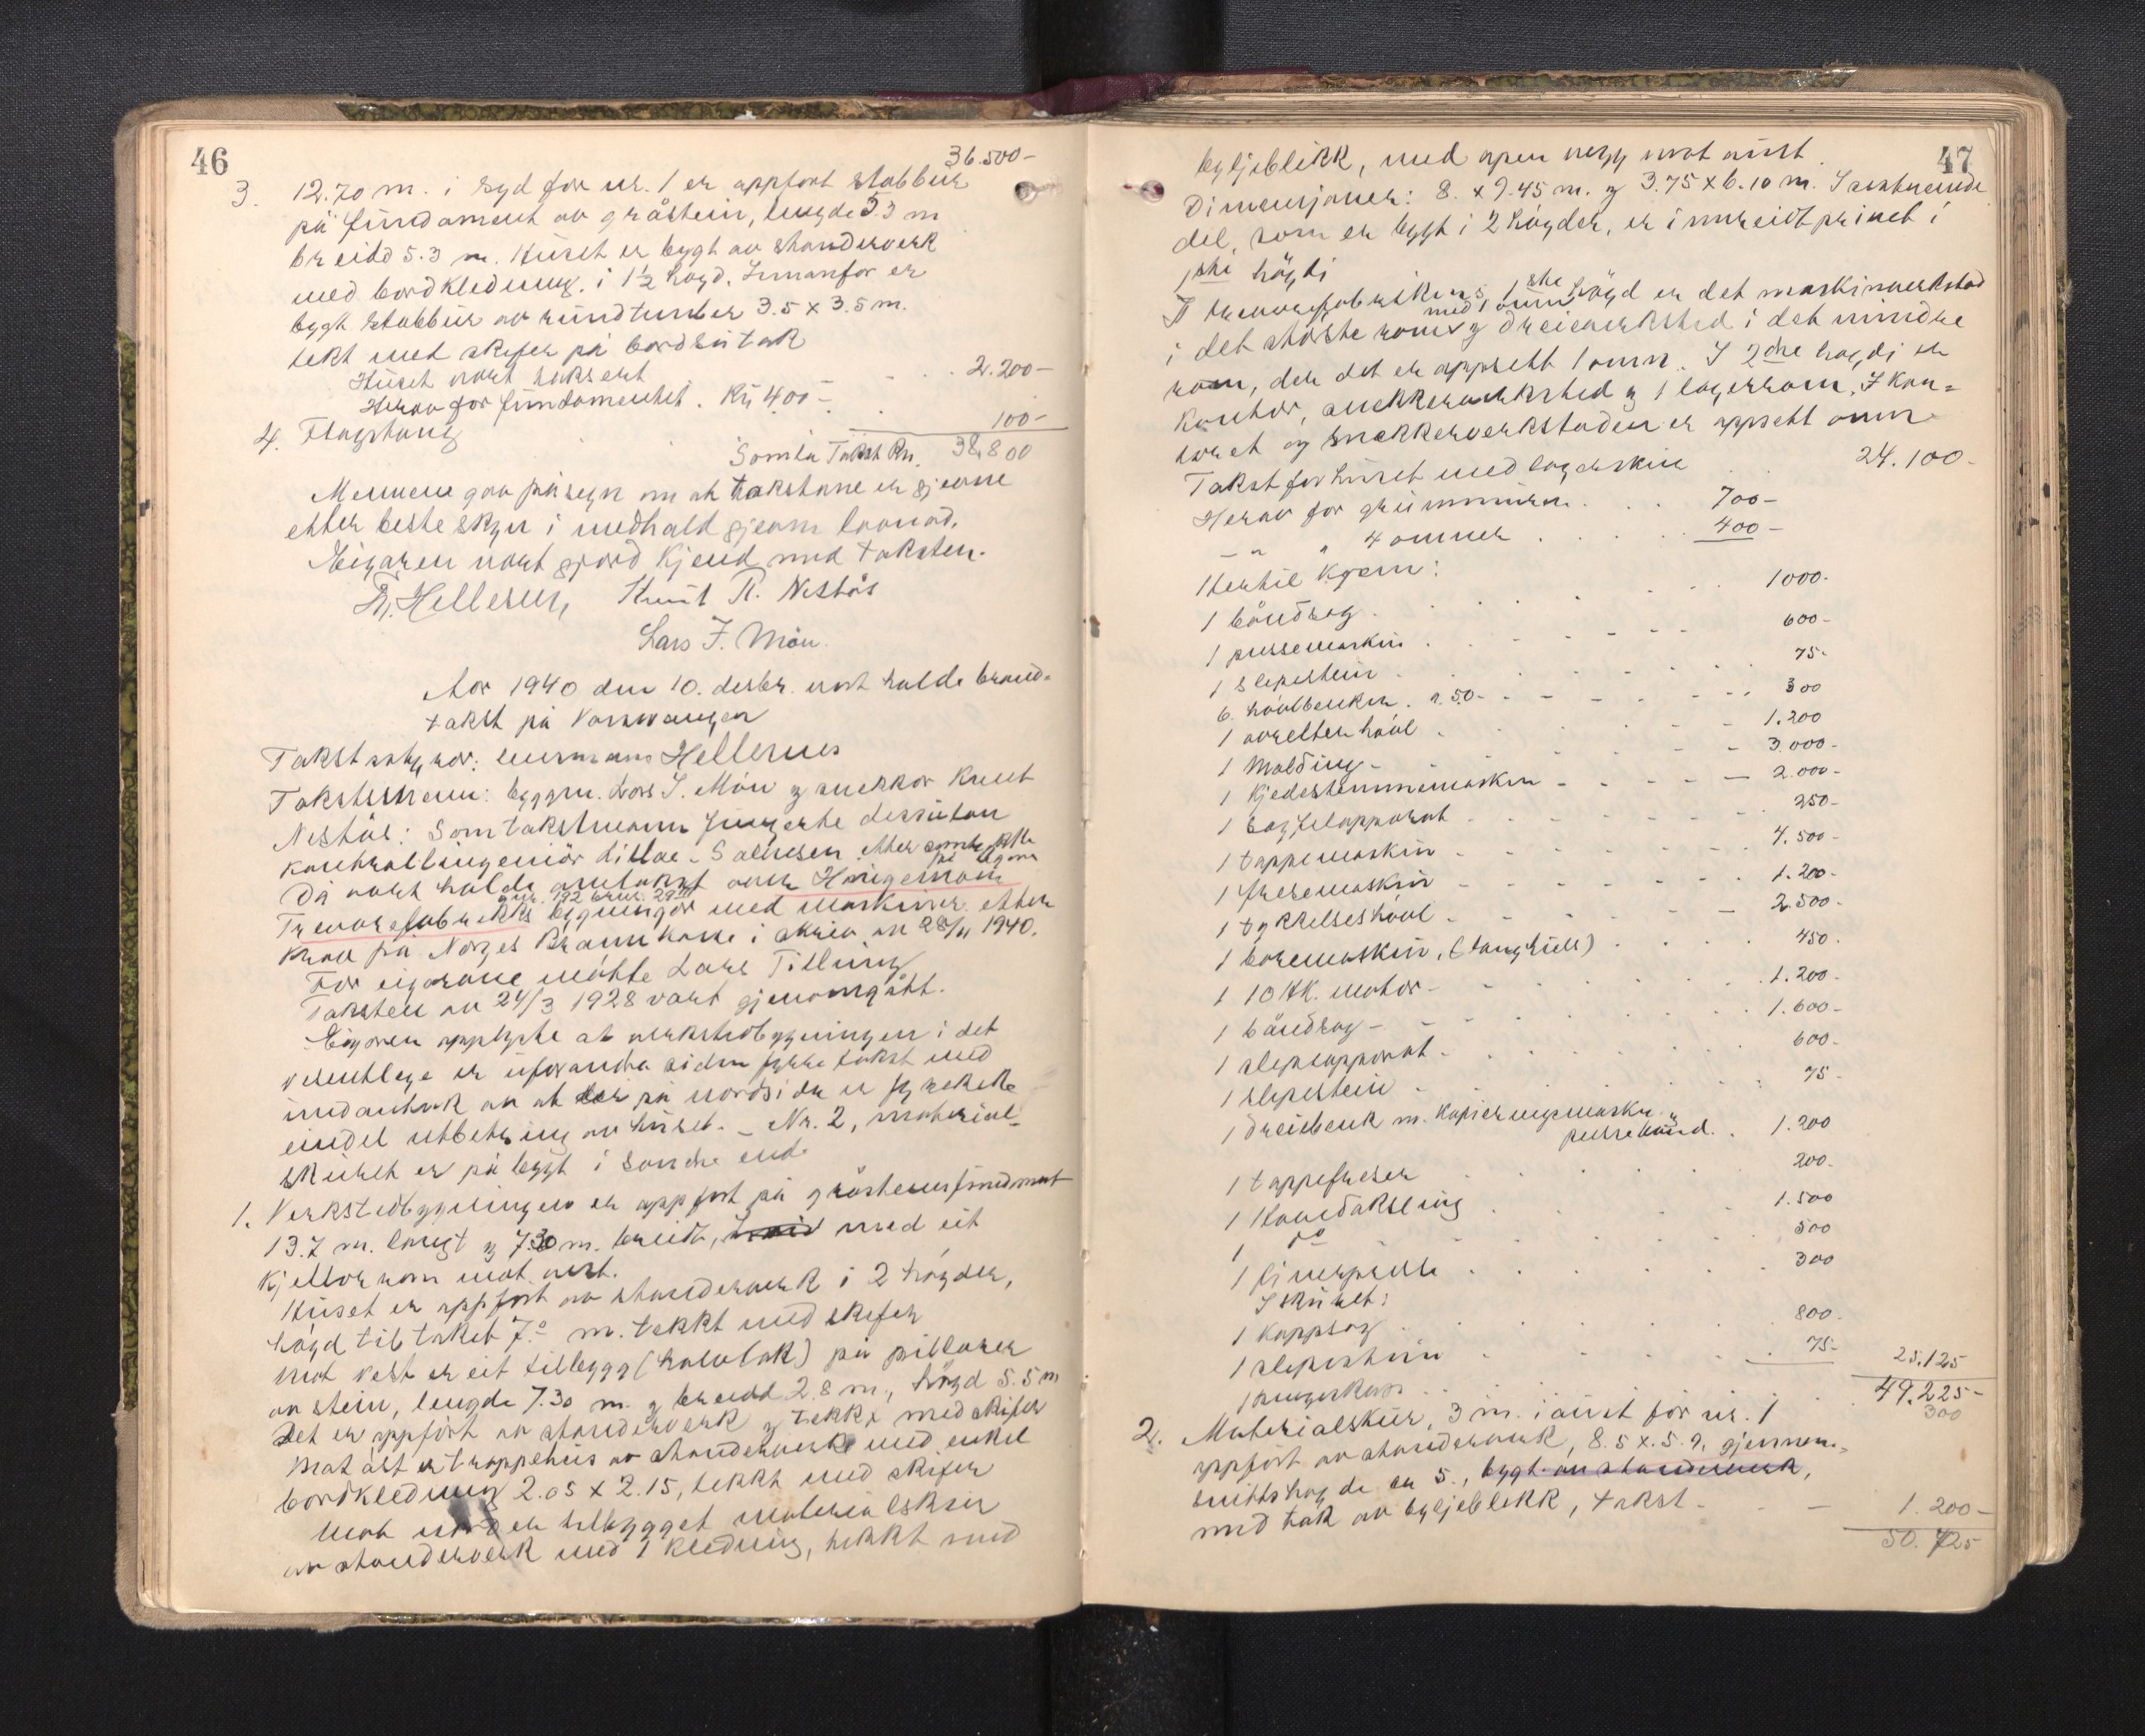 46
36.500-
3. 12.70 m. i syd for nr. 1 er oppført stabbur
på fundament av gråstein, lengde 5.3 m
breidd 5.3 m. Huset er bygt av standerverk
med bordkledning, i 1½ høgd. Innanfor er
bygt stabbur av rundtømber 3.5 x 3.5 m.
tekt med skifer på bordsutak
Huset vart taksert . . . 2.200-
Herav for fundamentet. Kr 400-
4. Flagstong . . 100-
Samla Takst Kr. 38.800
Mennene gav påsegn om at takstane er gjevne
etter beste skyn i medhald gjevna lovnad.
Eigaren vart gjord kjend med taksten.
Hellesnes, Knut R. Nestås
Lars J. Møn.
Aar 1940 den 10. desbr. vart halde brand-
takst på Vossvangen
Takststyrar: lensmann Hellesnes
Takstmenn: byggm. Lars J. Møn og snekkar Knut
Nestås: Som takstmann fungerte dessutan
kontrollingeniør Salvesen etter
Då vart halde omtakst over Haugemoen
gnr. 192 bnr. 29
Trevarefabrikks bygningar med maskiner etter
krav på Norges Brannkasse i skriv av 28/11 1940.
For eigarane møtte Lars Tillung
Taksten av 24/3 1928 vart gjenomgått.
Eigaren opplyste at verkstedbygningen i det
vesentlege er uforandra siden fyrre takst med
undantak av at der på nordsida er
eindel utbetring av huset. - Nr. 2, material-
skuret er på bygt i søndre ende
1. Verkstedbygningen er oppført på gråsteinsfundament
13.7 m. langt og 7.30 m. breidt, med eit
kjellarrom mot vest.
Huset er oppført av standerverk i 2 høgder,
høgd til taket 7.- m. tekkt med skifer
mot vest er eit tilbygg (halvtak) på pillarer
av stein, lengde 7.30 m. og breidd 2.8 m, høgd 5.5 m
Det er oppført av standerverk og tekkt med skifer
mot aust er trappehus av standerverk med enkel
bordkledning 2.05 x 2.15, tekkt med skifer
Mot nord er tilbygget materialskur
av standerverk med 1 kledning, tekkt med
47
bylgjeblikk, med open vegg mot aust.
Dimensjoner: 8. x 9.45 m. og 3.75 x 6.10 m. I
del, som er bygt i 2 høgder, er innreidt i
1ste høgdi
I trevarefabrikkens 1ste høgd er det maskinverkstad
i det største rom med 1 omn og dreieverksted i det mindre
rom, der det er oppsett 1 omn. I 2dre høgdi er
kontor, snekkerverksted og 1 lagerrom. I kon-
toret og snekkerverkstaden er oppsett omn
Takst for huset med lagerskur . . 24.100-
Herav for grunnmuren . . . 700-
- " " 4 omner . . . . 400-
Hertil kjem:
1 båndsag . . . . 1000.
1 pussemaskin . . . . 600-
1 slipestein . . . . 75-
6. høvlbenker. a. 50- . . . . 300
1 avretterhøvl . . . . 1.200
1 Molding- . . . . 3.000-
1 kjedestemmemaskin . . . . 2.000-
1 sagfilapparat . . . . 250-
1 tappemaskin . . . . 4.500-
1 fresemaskin . . . . 1.200-
1 tykkelseshøvl . . . . 2.500-
1 boremaskin, (langhull) . . . . 450.
1 10 HK. motor . . . . 1.200-
1 båndsag - . . . . 1.600-
1 slipeapparat . . . . 600-
1 slipestein . . . . 75-
1 dreiebenk m. kopieringsmaskin og
pussebånd . 1.200
1 tappefreser . . . . 200-
1 Hovedaksling . . . . 1.500
1 do . . . . 500
1 finerpresse . . . . 300
I skuret:
1 kappsag . . . . 800.
1 slipestein . . . . 75- 25.125
1 . . . . 49.225-
300
2. Materialskur, 3 m. i aust for nr. 1
oppført av standerverk, 8.5 x 5.9, gjennem-
snittshøgde er 5., bygt av standerverk,
med tak av bylgjeblekk, takst - - 1.200-
50.725